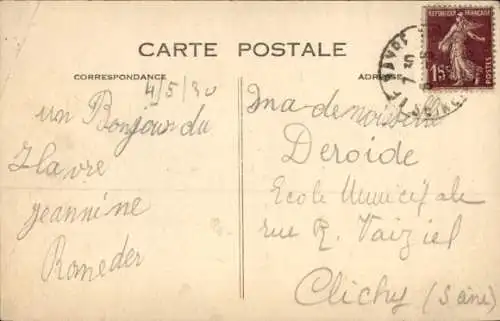 RÉPUBLIQUE FRANÇAISE
15c
POSTES
LE HAVRE
CARTE POSTALE
CORRESPONDANCE
ADRESSE
4/5/30
un Bonjour du
Havre
Jeannine
Mademoiselle
Deroide
Ecole Municipale
rue R. Vaiziel
Clichy (Seine)